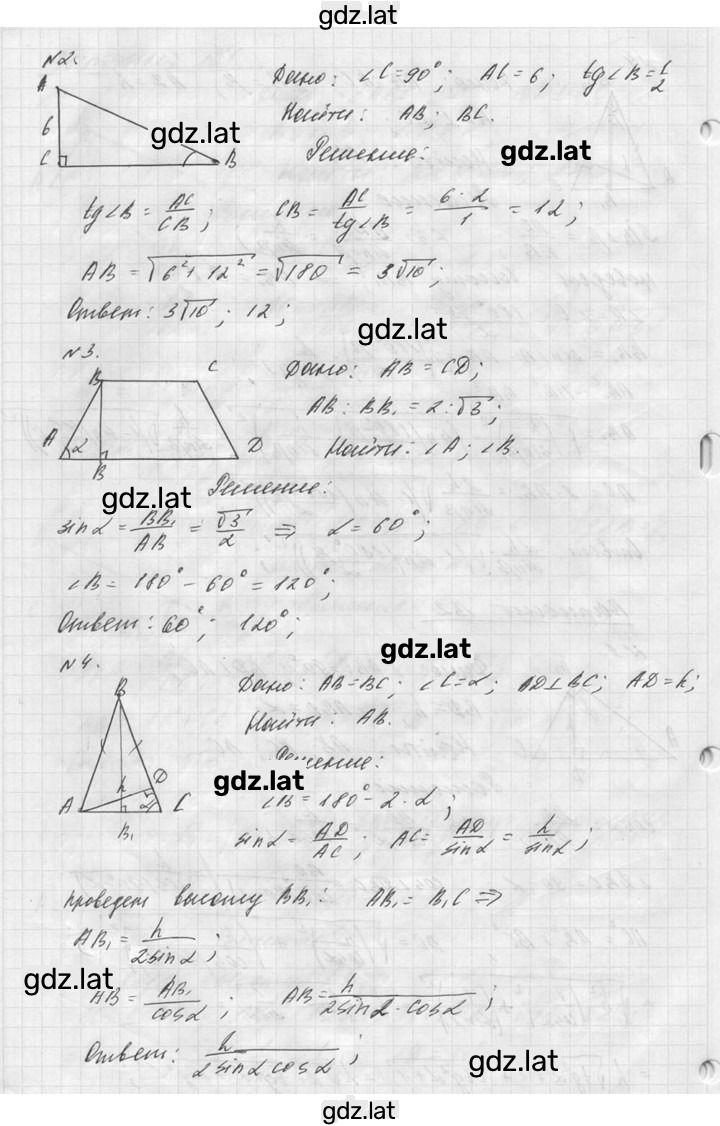 gdz.lat
№2.
Дано: ∠C=90°; AC=6; tg∠B=1/2
A
6
C
B
gdz.lat
Найти: AB; BC.
Решение:
gdz.lat
tg∠B = AC/CB; CB = AC/tg∠B = 6·2/1 = 12;
AB = √(6²+12²) = √180 = 3√10;
Ответ: 3√10; 12;
gdz.lat
№3.
Дано: AB = CD;
B C
A α B D
AB : BB₁ = 2:√3;
Найти: ∠A; ∠B.
gdz.lat
Решение:
sinα = BB₁/AB = √3/2 ⇒ α = 60°;
∠B = 180° - 60° = 120°;
Ответ: 60°; 120°;
gdz.lat
№4.
Дано: AB=BC; ∠C=α; AD⊥BC; AD=h;
B
h D
A α C
B₁
Найти: AB.
Решение:
gdz.lat
∠B = 180° - 2·α;
sinα = AD/AC; AC = AD/sinα = h/sinα;
Проведем высоту BB₁: AB₁ = B₁C ⇒
AB₁ = h/2sinα;
gdz.lat
AB = AB₁/cosα; AB = h/2sinα·cosα;
Ответ: h/2sinα cosα;
gdz.lat
gdz.lat